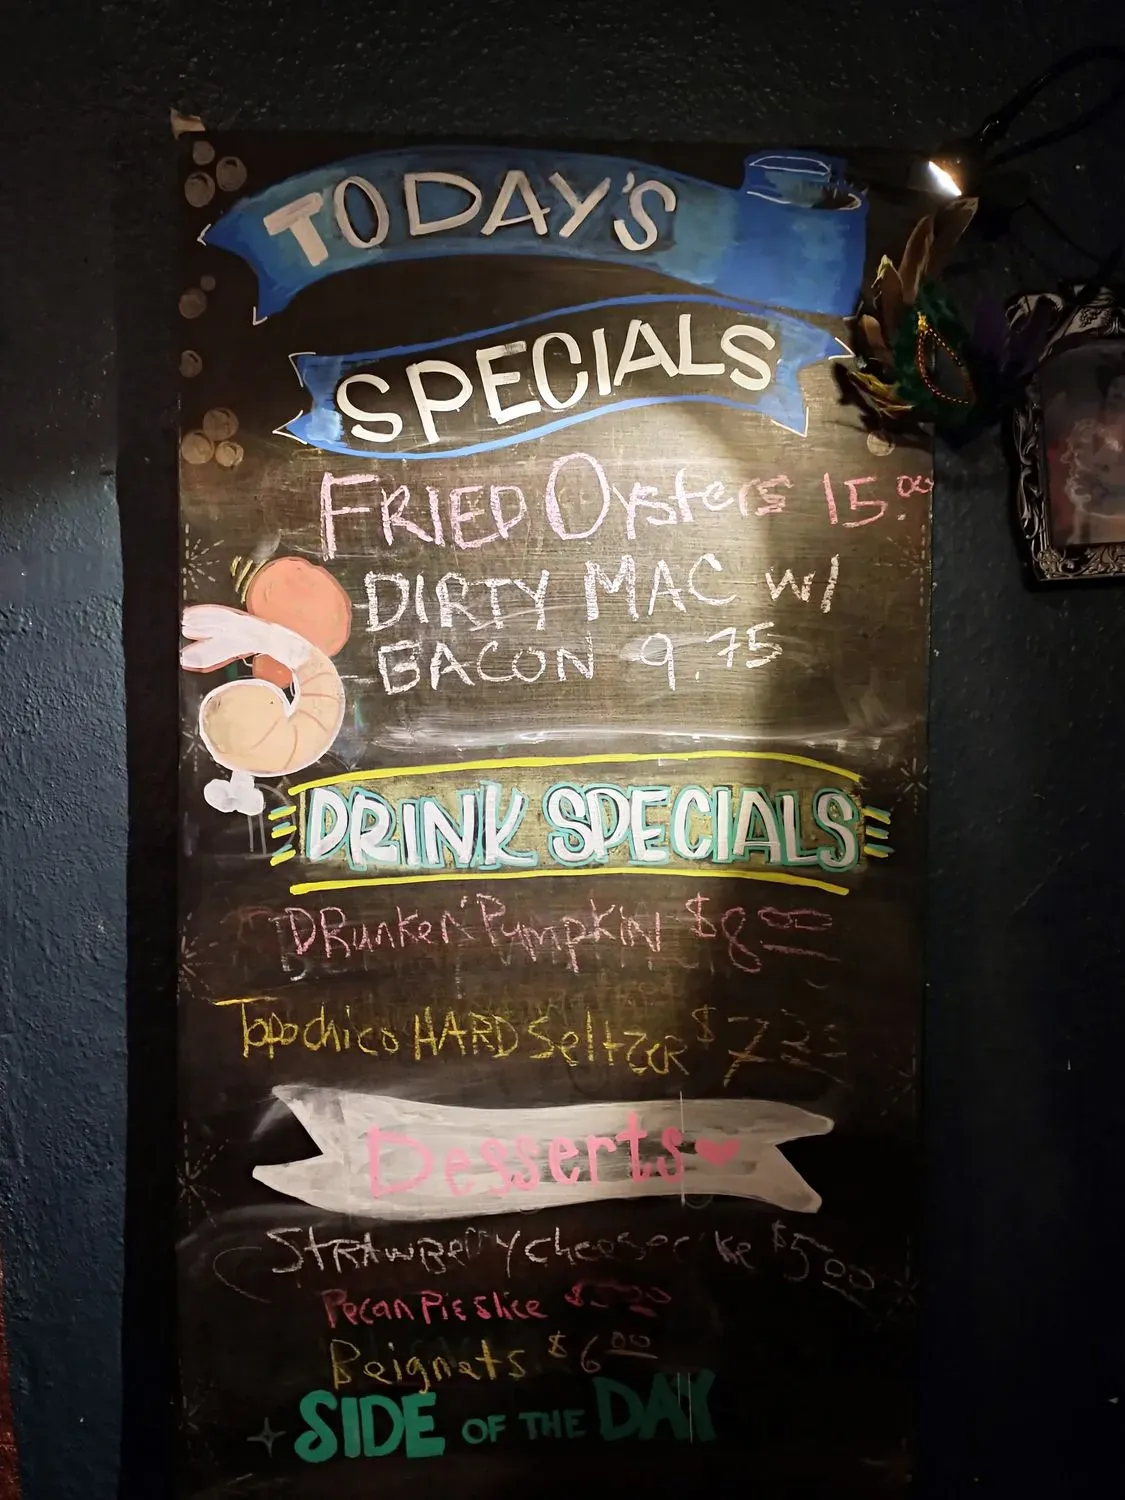 TODAY'S
SPECIALS
FRIED Oysters 15.00
DIRTY MAC w/
BACON 9.75
DRINK SPECIALS
DRunken' Pumpkin $8.00
Topochico HARD Seltzer $7
Desserts
Strawberry cheesecake $5.00
Pecan Pie slice $5.00
Beignets $6.00
SIDE OF THE DAY